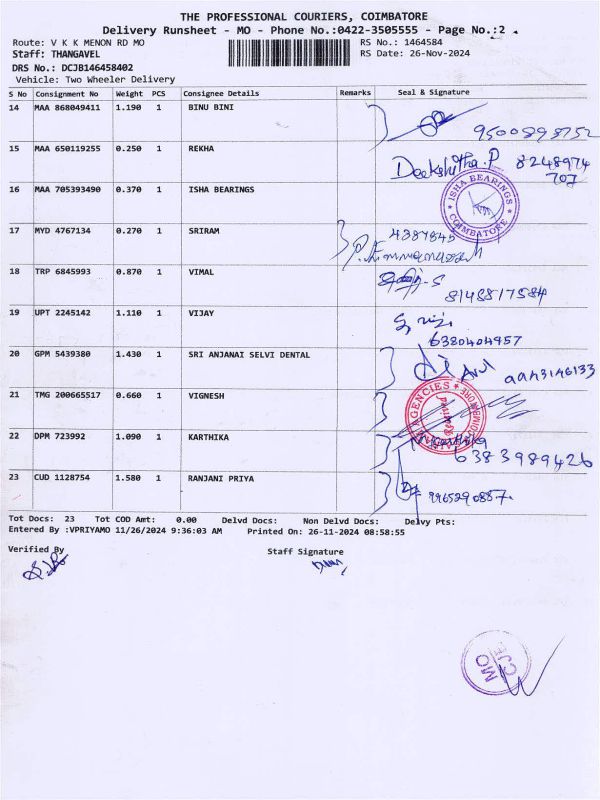 THE PROFESSIONAL COURIERS, COIMBATORE
Delivery Runsheet - MO - Phone No.:0422-3505555 - Page No.:2
Route: V K K MENON RD MO RS No.: 1464584
Staff: THANGAVEL RS Date: 26-Nov-2024
DRS No.: DCJB146458402
Vehicle: Two Wheeler Delivery
S No Consignment No Weight PCS Consignee Details Remarks Seal & Signature
14 MAA 868049411 1.190 1 BINU BINI
9500898752
15 MAA 650119255 0.250 1 REKHA Deekshitha.P 8248974
707
16 MAA 705393490 0.370 1 ISHA BEARINGS
ISHA BEARINGS
COIMBATORE
17 MYD 4767134 0.270 1 SRIRAM
18 TRP 6845993 0.870 1 VIMAL
8148817584
19 UPT 2245142 1.110 1 VIJAY
6380404957
20 GPM 5439380 1.430 1 SRI ANJANAI SELVI DENTAL
21 TMG 200665517 0.660 1 VIGNESH
AGENCIES
22 DPM 723992 1.090 1 KARTHIKA
6383989426
23 CUD 1128754 1.580 1 RANJANI PRIYA
9965290857.
Tot Docs: 23 Tot COD Amt: 0.00 Delvd Docs: Non Delvd Docs: Delvy Pts:
Entered By :VPRIYAMO 11/26/2024 9:36:03 AM Printed On: 26-11-2024 08:58:55
Verified By Staff Signature
CJB
MO